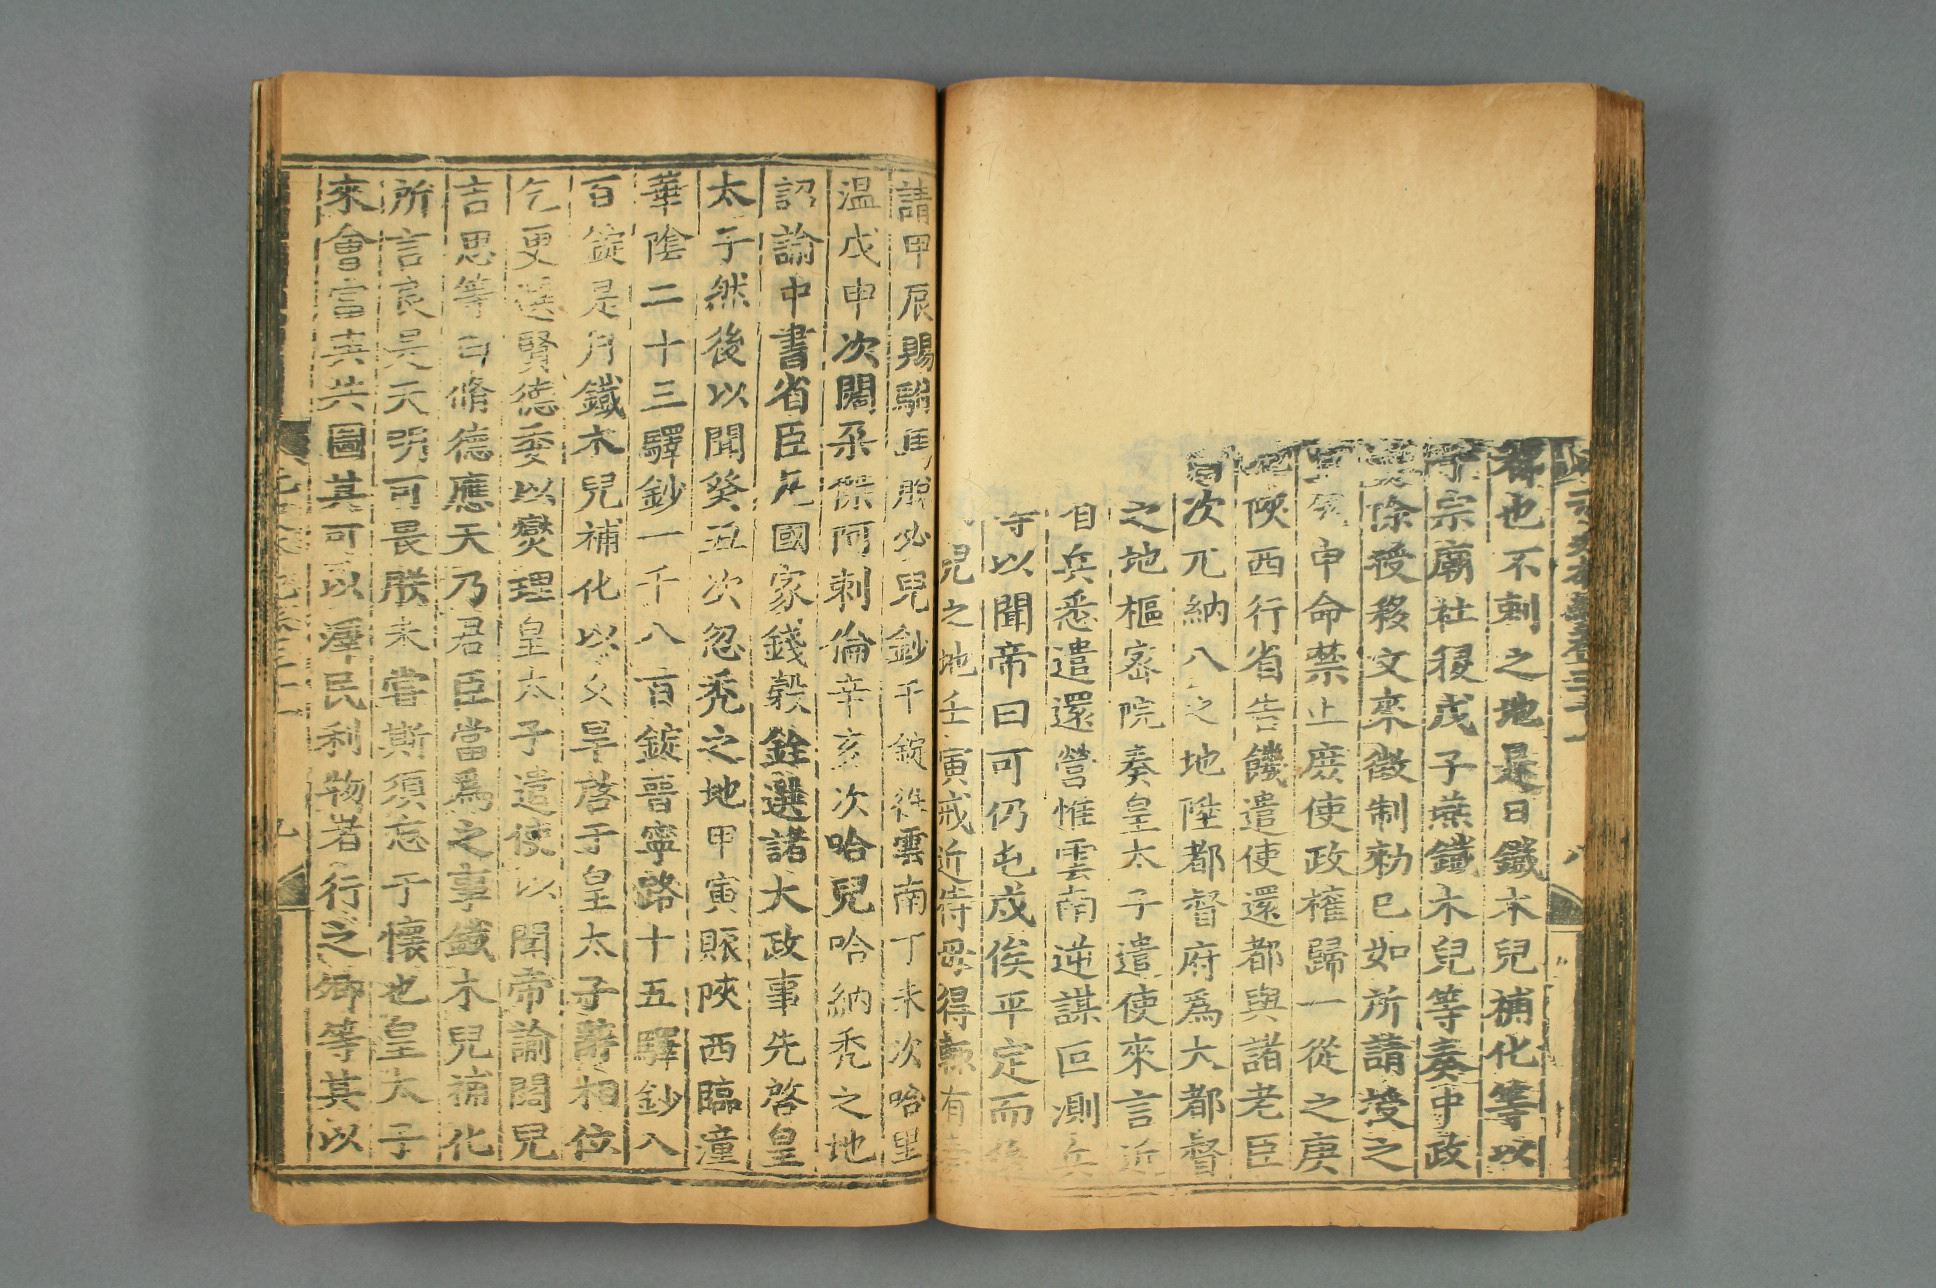 元史本紀卷三十一 八
者也不剌之地是日鐵木兒補化等以
宗廟社稷戊子燕鐵木兒等奏中政
除授移文來徵制勑已如所請授之
申命禁止庶使政權歸一從之庚
陜西行省告饑遣使還都與諸老臣
次兀納八之地陞都督府爲大都督
之地樞密院奏皇太子遣使來言近
兵悉遣還營惟雲南逆謀叵測兵
等以聞帝曰可仍屯戍俟平定而後
兒之地壬寅戒近侍毋得輒有
請甲辰賜駙馬脫必兒鈔千錠往雲南丁未次哈里
温戊申次闊朶傑阿剌倫辛亥次哈兒哈納禿之地
詔諭中書省臣凡國家錢穀銓選諸大政事先啓皇
太子然後以聞癸丑次忽禿之地甲寅賑陜西臨潼
華陰二十三驛鈔一千八百錠晉寧路十五驛鈔八
百錠是月鐵木兒補化以久旱啓于皇太子辭相位
乞更選賢德委以燮理皇太子遣使以聞帝諭闊兒
吉思等曰脩德應天乃君臣當爲之事鐵木兒補化
所言良是天明可畏朕未嘗斯須忘于懷也皇太子
來會當與共圖其可以澤民利物者行之卿等其以
元史本紀卷三十一 九